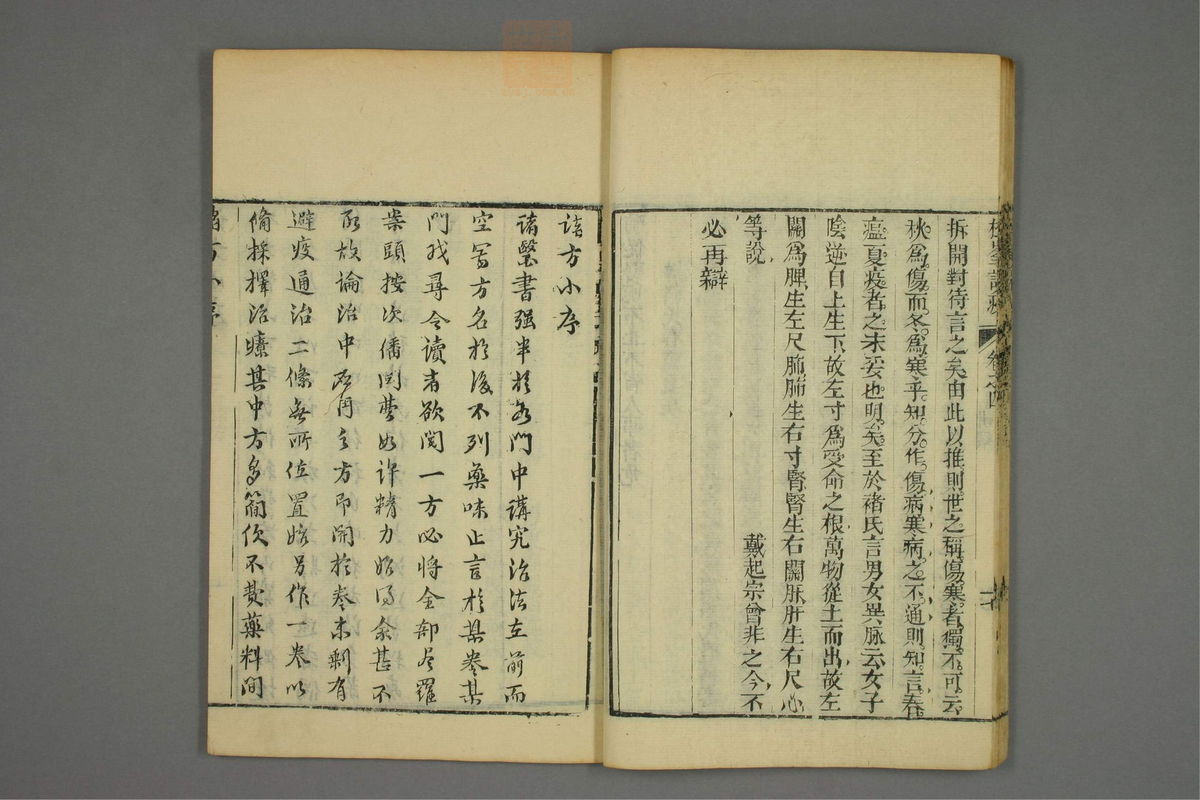 拆開對待言之矣由此以推則世之稱傷寒者獨不可云
秋爲傷而冬爲寒乎知分作傷病寒病之不通則知言春
瘟夏疫者之未妥也明矣至於褚氏言男女異脉云女子
陰逆自上生下故左寸爲受命之根萬物從土而出故左
關爲脾生左尺肺肺生右寸腎腎生右關脉肝生右尺心
等說
戴起宗曾非之今不
必再辯
諸方小序
諸醫書强半於各門中講究治法在前而
空寫方名於後不列藥味止言於某卷某
門找尋令讀者欲閱一方必將全部尽羅
案頭按次備閱費如許精力始得余甚不
取故論治中所用之方即開於卷末剩有
避疫通治二條無所位置始另作一卷以
備採擇治療其中方多簡便不費藥料間
卷之四